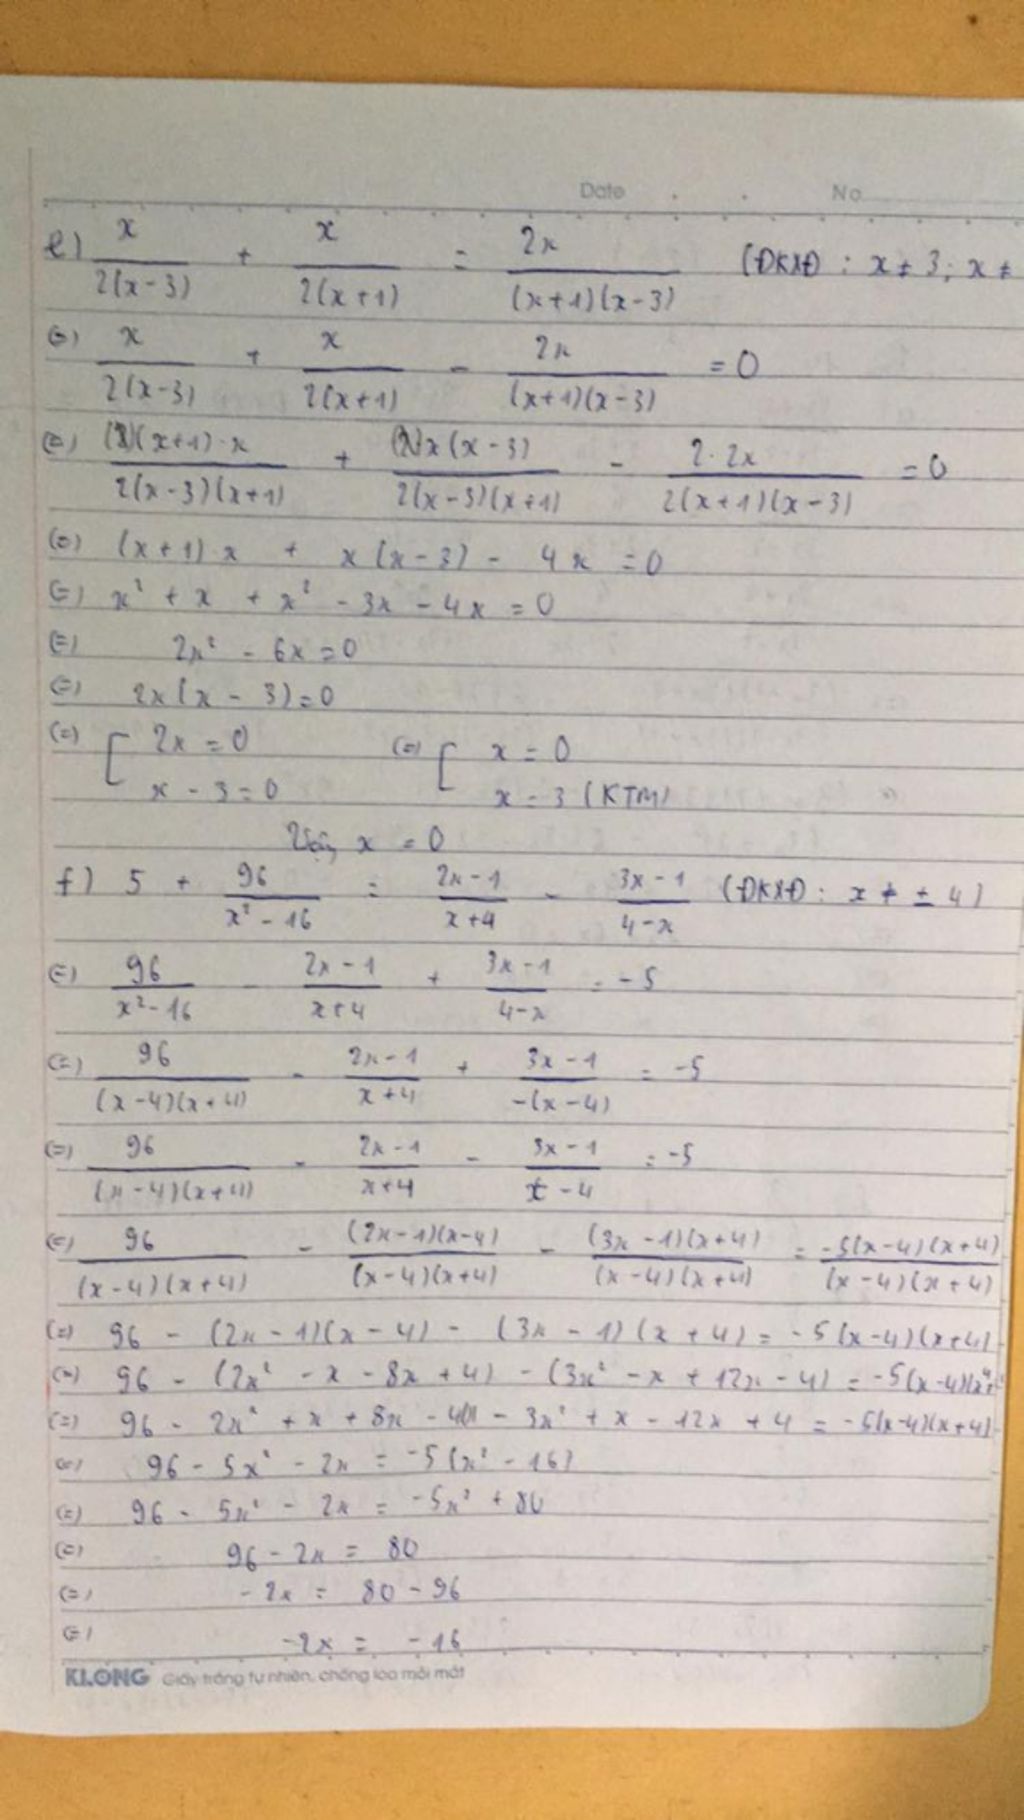 Date . . No
e) x/(2(x-3)) + x/(2(x+1)) = 2x/((x+1)(x-3)) (ĐKXĐ : x ≠ 3; x ≠
(=) x/(2(x-3)) + x/(2(x+1)) - 2x/((x+1)(x-3)) = 0
(=) (x+1)·x/(2(x-3)(x+1)) + x(x-3)/(2(x-3)(x+1)) - 2·2x/(2(x+1)(x-3)) = 0
(=) (x+1)·x + x(x-3) - 4x = 0
(=) x² + x + x² - 3x - 4x = 0
(=) 2x² - 6x = 0
(=) 2x(x - 3) = 0
(=) [ 2x = 0 (=) [ x = 0
x - 3 = 0 x = 3 (KTM)
Vậy x = 0
f) 5 + 96/(x² - 16) = (2x-1)/(x+4) - (3x-1)/(4-x) (ĐKXĐ : x ≠ ± 4)
(=) 96/(x²-16) - (2x-1)/(x+4) + (3x-1)/(4-x) = -5
(=) 96/((x-4)(x+4)) - (2x-1)/(x+4) + (3x-1)/(-(x-4)) = -5
(=) 96/((x-4)(x+4)) - (2x-1)/(x+4) - (3x-1)/(x-4) = -5
(=) 96/((x-4)(x+4)) - (2x-1)(x-4)/((x-4)(x+4)) - (3x-1)(x+4)/((x-4)(x+4)) = -5(x-4)(x+4)/((x-4)(x+4))
(=) 96 - (2x-1)(x-4) - (3x-1)(x+4) = -5(x-4)(x+4)
(=) 96 - (2x² - x - 8x + 4) - (3x² - x + 12x - 4) = -5(x-4)(x+
(=) 96 - 2x² + x + 8x - 4 - 3x² + x - 12x + 4 = -5(x-4)(x+4)
(=) 96 - 5x² - 2x = -5(x² - 16)
(=) 96 - 5x² - 2x = -5x² + 80
(=) 96 - 2x = 80
(=) -2x = 80 - 96
(=) -2x = -16
KLONG Giấy trắng tự nhiên, chống lóa mỏi mắt